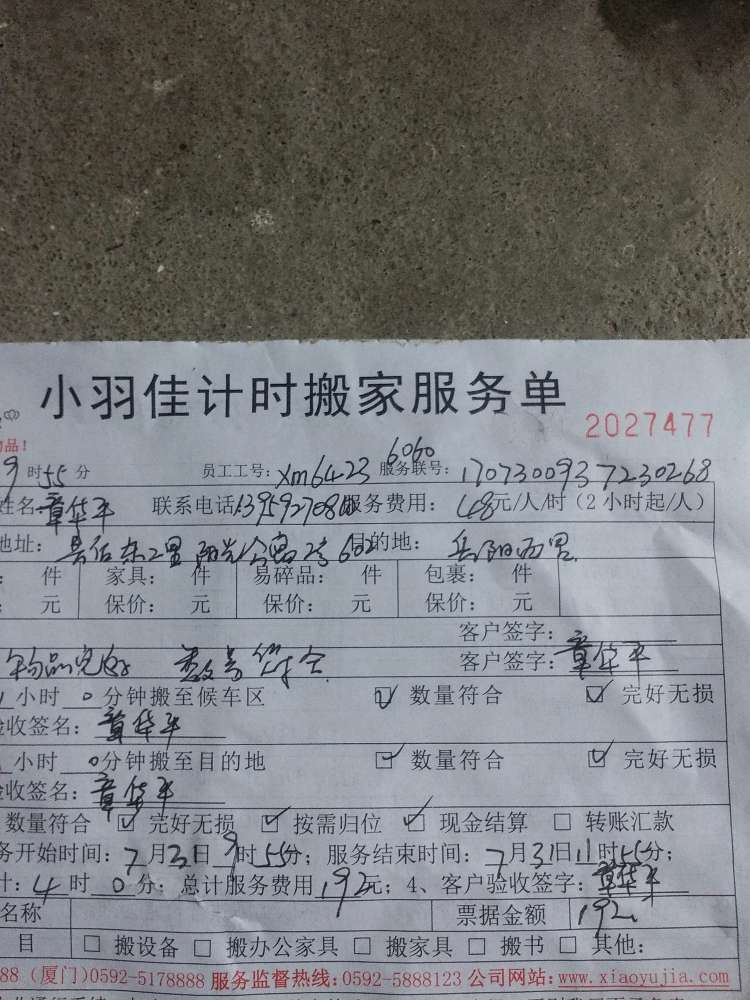 小羽佳计时搬家服务单
2027477
物品!
9时55分 员工工号: xm6423 6060 服务联号: 170730093 7230268
姓名 章华平 联系电话 服务费用: 48元/人/时 (2小时起/人)
地址: 目的地: 岳阳西里
件 家具: 件 易碎品: 件 包裹: 件
元 保价: 元 保价: 元 保价: 元
客户签字:
物品完好 数量符合 客户签字: 章华平
小时 0分钟搬至候车区 ☑ 数量符合 ☑ 完好无损
验收签名: 章华平
小时 0分钟搬至目的地 ☑ 数量符合 ☑ 完好无损
验收签名: 章华平
数量符合 ☑ 完好无损 ☑ 按需归位 ☑ 现金结算 □ 转账汇款
务开始时间: 7月31日9时55分; 服务结束时间: 7月31日11时55分;
计: 4时0分; 总计服务费用192元; 4、客户验收签字: 章华平
名称 票据金额 192
目 □ 搬设备 □ 搬办公家具 □ 搬家具 □ 搬书 □ 其他:
88 (厦门)0592-5178888 服务监督热线:0592-5888123 公司网站:www.xiaoyujia.com